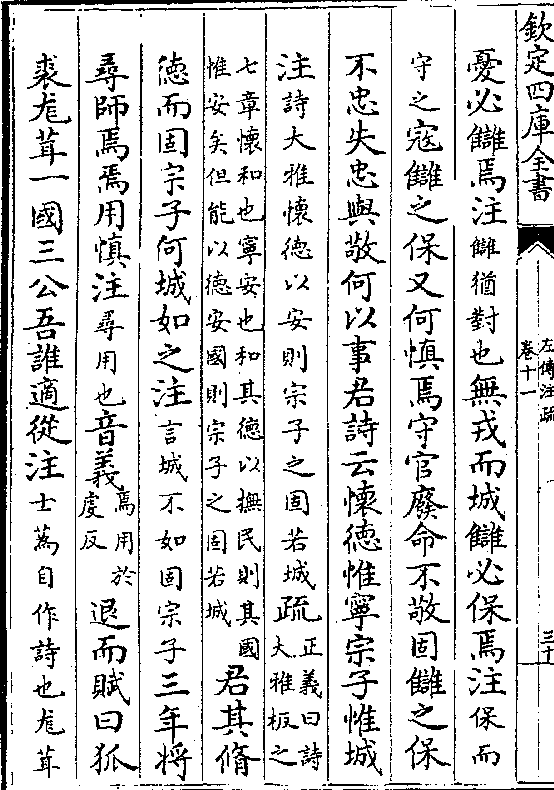 欽定四庫全書
左傳注疏
卷十一
三十
憂必讎焉注讎猶對也無戎而城讎必保焉注保而
守之寇讎之保又何慎焉守官廢命不敬固讎之保
不忠失忠與敬何以事君詩云懷德惟寧宗子惟城
注詩大雅懷德以安則宗子之固若城疏正義曰詩大雅板之
七章懷和也寧安也和其德以撫民則其國惟安矣但能以德安國則宗子之固若城君其脩
德而固宗子何城如之注言城不如固宗子三年將
尋師焉焉用慎注尋用也音義焉用於虔反退而賦曰狐
裘尨茸一國三公吾誰適從注士蒍自作詩也尨茸